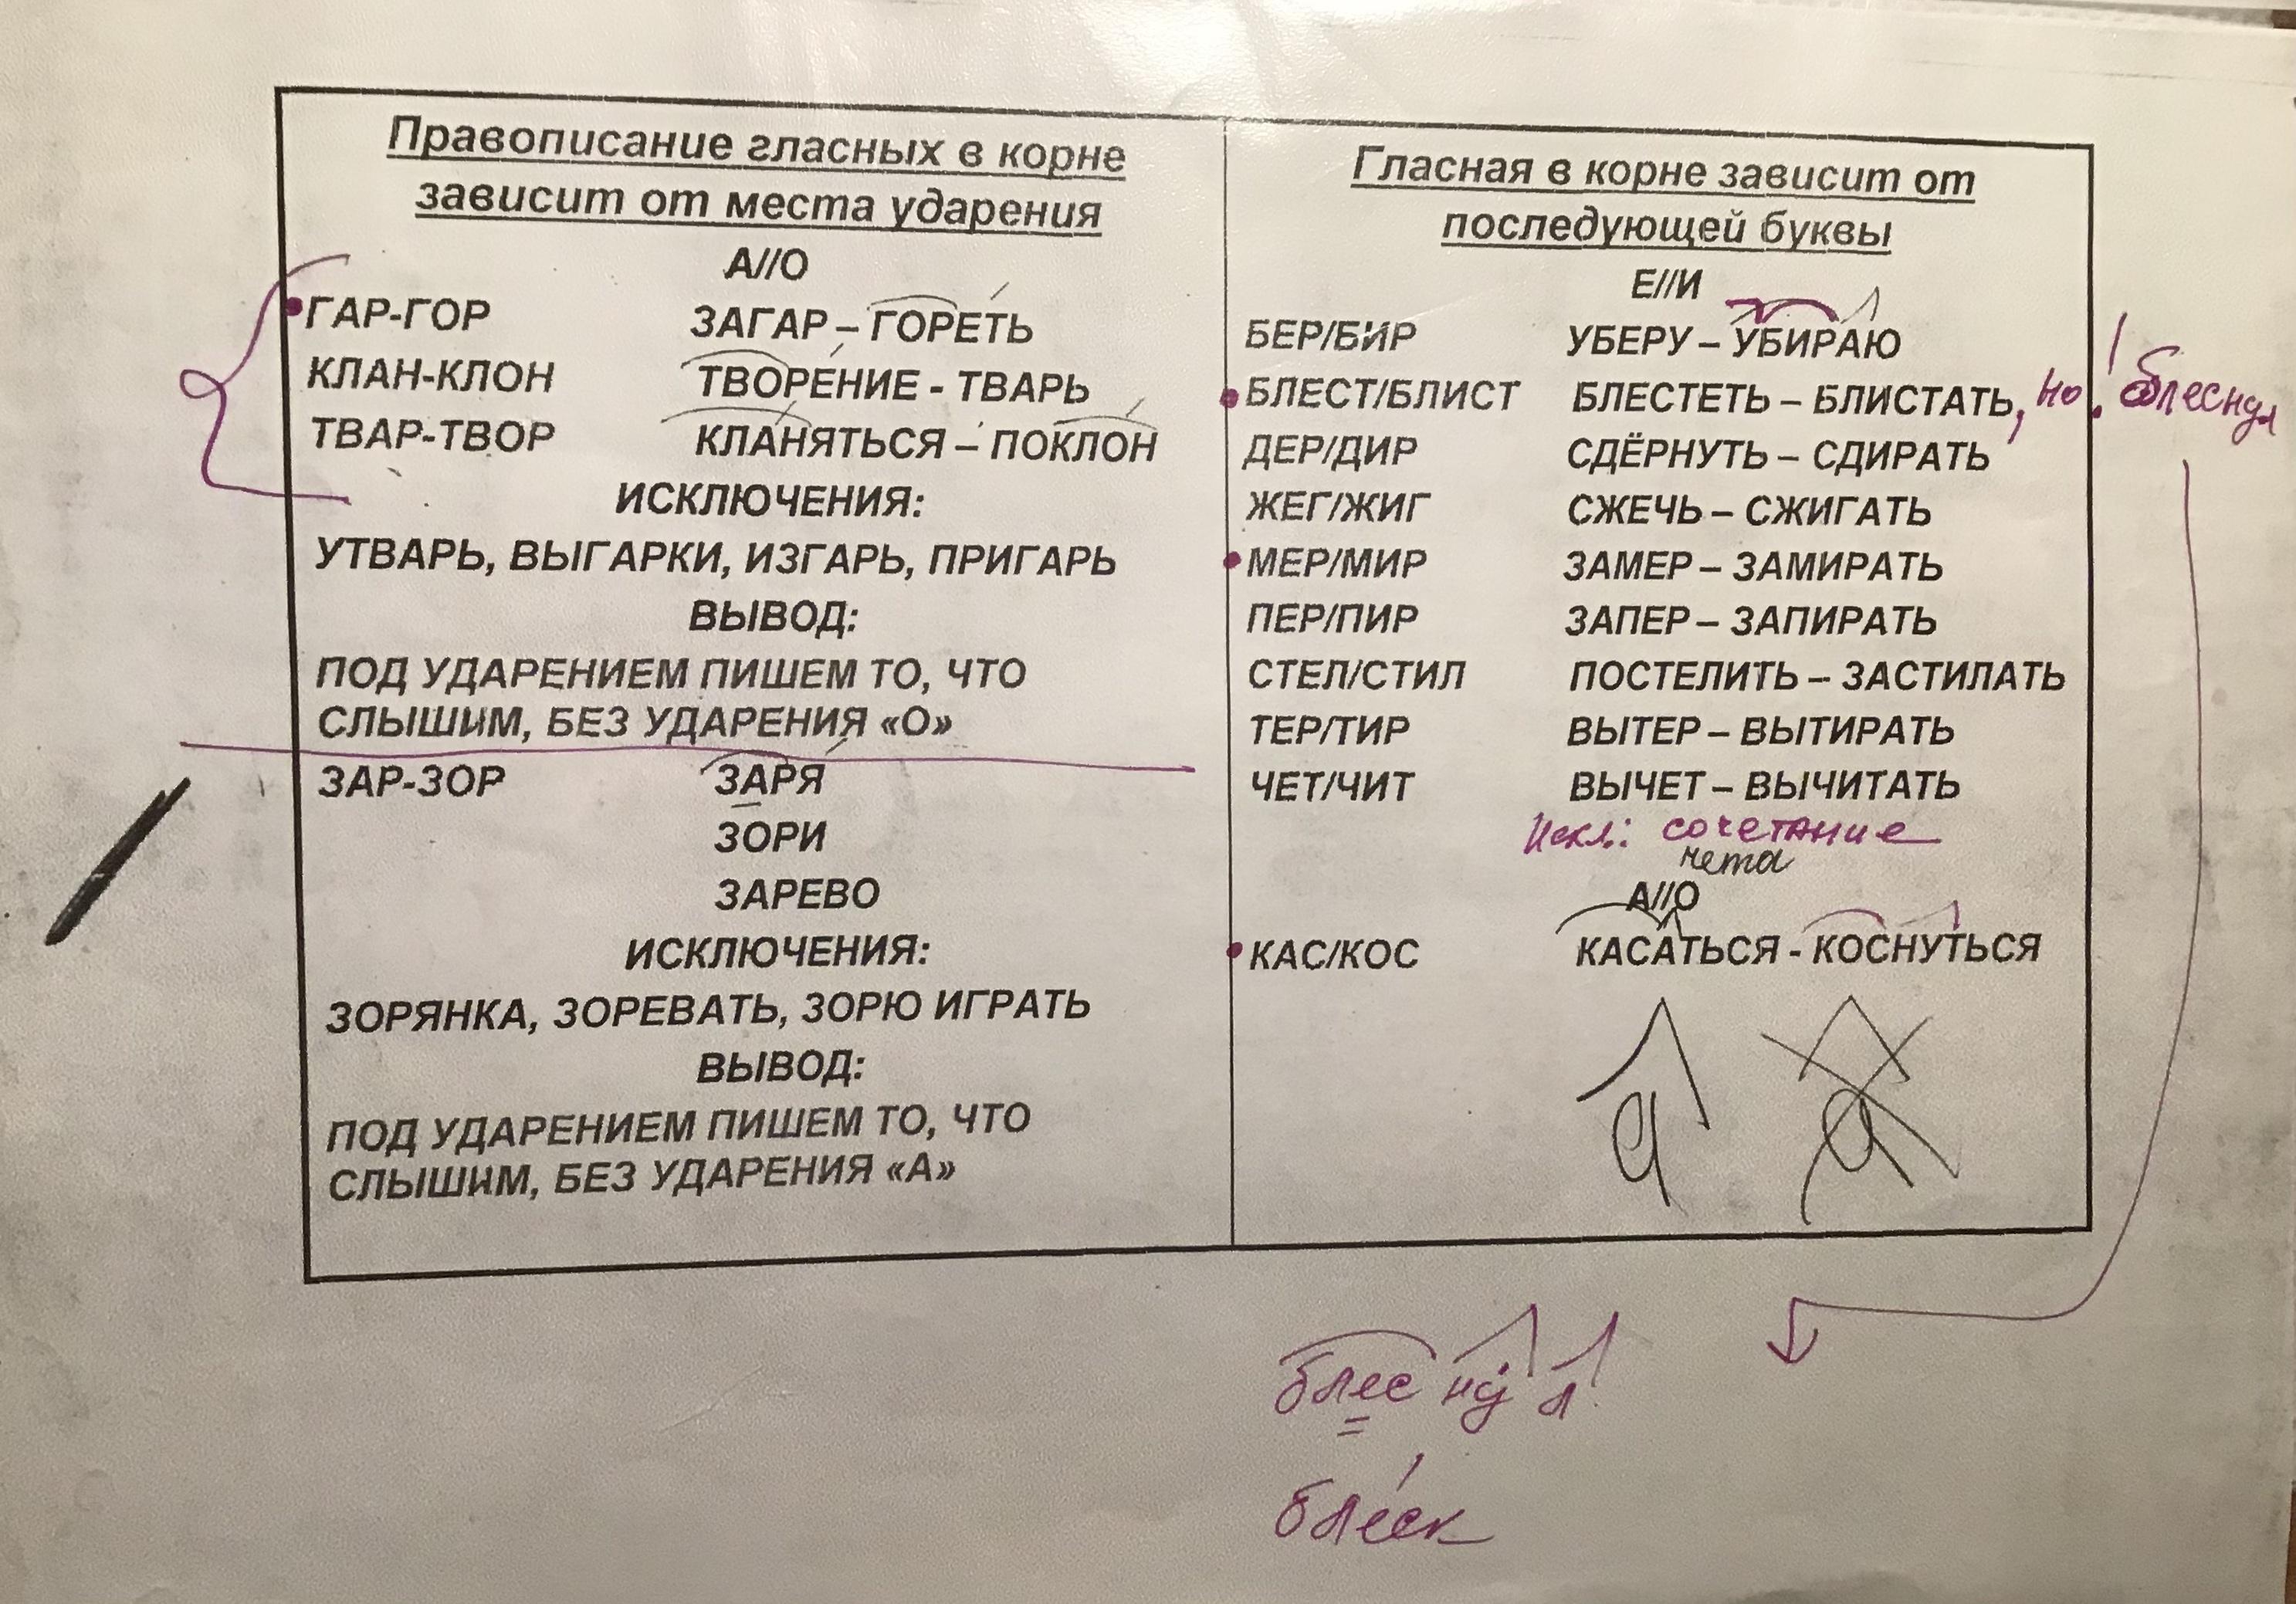 Правописание гласных в корне
зависит от места ударения
А//О
ГАР-ГОР ЗАГАР – ГОРЕТЬ
КЛАН-КЛОН ТВОРЕНИЕ - ТВАРЬ
ТВАР-ТВОР КЛАНЯТЬСЯ – ПОКЛОН
ИСКЛЮЧЕНИЯ:
УТВАРЬ, ВЫГАРКИ, ИЗГАРЬ, ПРИГАРЬ
ВЫВОД:
ПОД УДАРЕНИЕМ ПИШЕМ ТО, ЧТО
СЛЫШИМ, БЕЗ УДАРЕНИЯ «О»
ЗАР-ЗОР ЗАРЯ
ЗОРИ
ЗАРЕВО
ИСКЛЮЧЕНИЯ:
ЗОРЯНКА, ЗОРЕВАТЬ, ЗОРЮ ИГРАТЬ
ВЫВОД:
ПОД УДАРЕНИЕМ ПИШЕМ ТО, ЧТО
СЛЫШИМ, БЕЗ УДАРЕНИЯ «А»
Гласная в корне зависит от
последующей буквы
Е//И
БЕР/БИР УБЕРУ – УБИРАЮ
БЛЕСТ/БЛИСТ БЛЕСТЕТЬ – БЛИСТАТЬ, но! блеснул
ДЕР/ДИР СДЁРНУТЬ – СДИРАТЬ
ЖЕГ/ЖИГ СЖЕЧЬ – СЖИГАТЬ
МЕР/МИР ЗАМЕР – ЗАМИРАТЬ
ПЕР/ПИР ЗАПЕР – ЗАПИРАТЬ
СТЕЛ/СТИЛ ПОСТЕЛИТЬ – ЗАСТИЛАТЬ
ТЕР/ТИР ВЫТЕР – ВЫТИРАТЬ
ЧЕТ/ЧИТ ВЫЧЕТ – ВЫЧИТАТЬ
Искл.: сочетание
чета
А//О
КАС/КОС КАСАТЬСЯ - КОСНУТЬСЯ
а а
блеснул
блеск